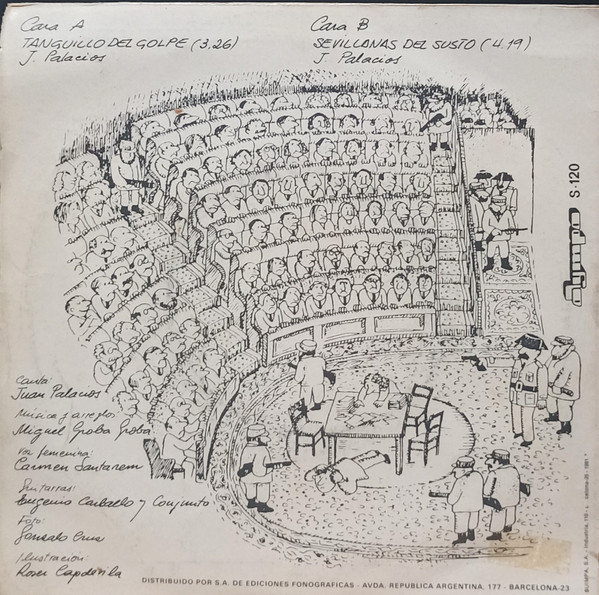 Cara A
TANGUILLO DEL GOLPE (3.26)
J. Palacios
Cara B
SEVILLANAS DEL SUSTO (4.19)
J. Palacios
olympo S-120
Canta:
Juan Palacios
Música y arreglos:
Miguel Groba Groba
Voz femenina:
Carmen Santarem
Guitarras:
Eugenio Carballo y Conjunto
Foto:
Gonzalo Cruz
Ilustración:
Roser Capdevila
DISTRIBUIDO POR S.A. DE EDICIONES FONOGRAFICAS - AVDA. REPUBLICA ARGENTINA, 177 - BARCELONA-23